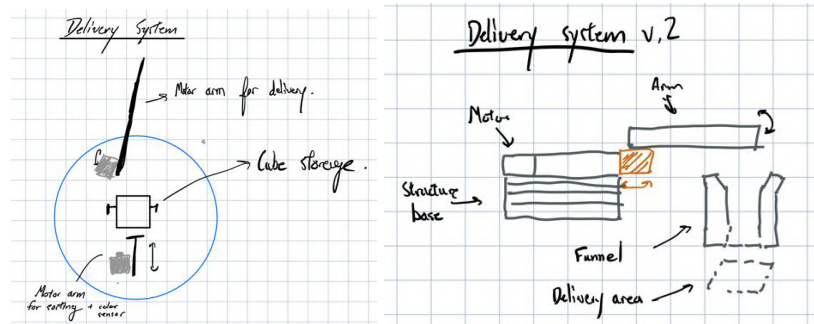 Delivery System
Motor arm for delivery.
Cube storage.
Motor arm
for sorting + color
sensor
Delivery system v.2
Arm
Motor
Structure
base
Funnel
Delivery area